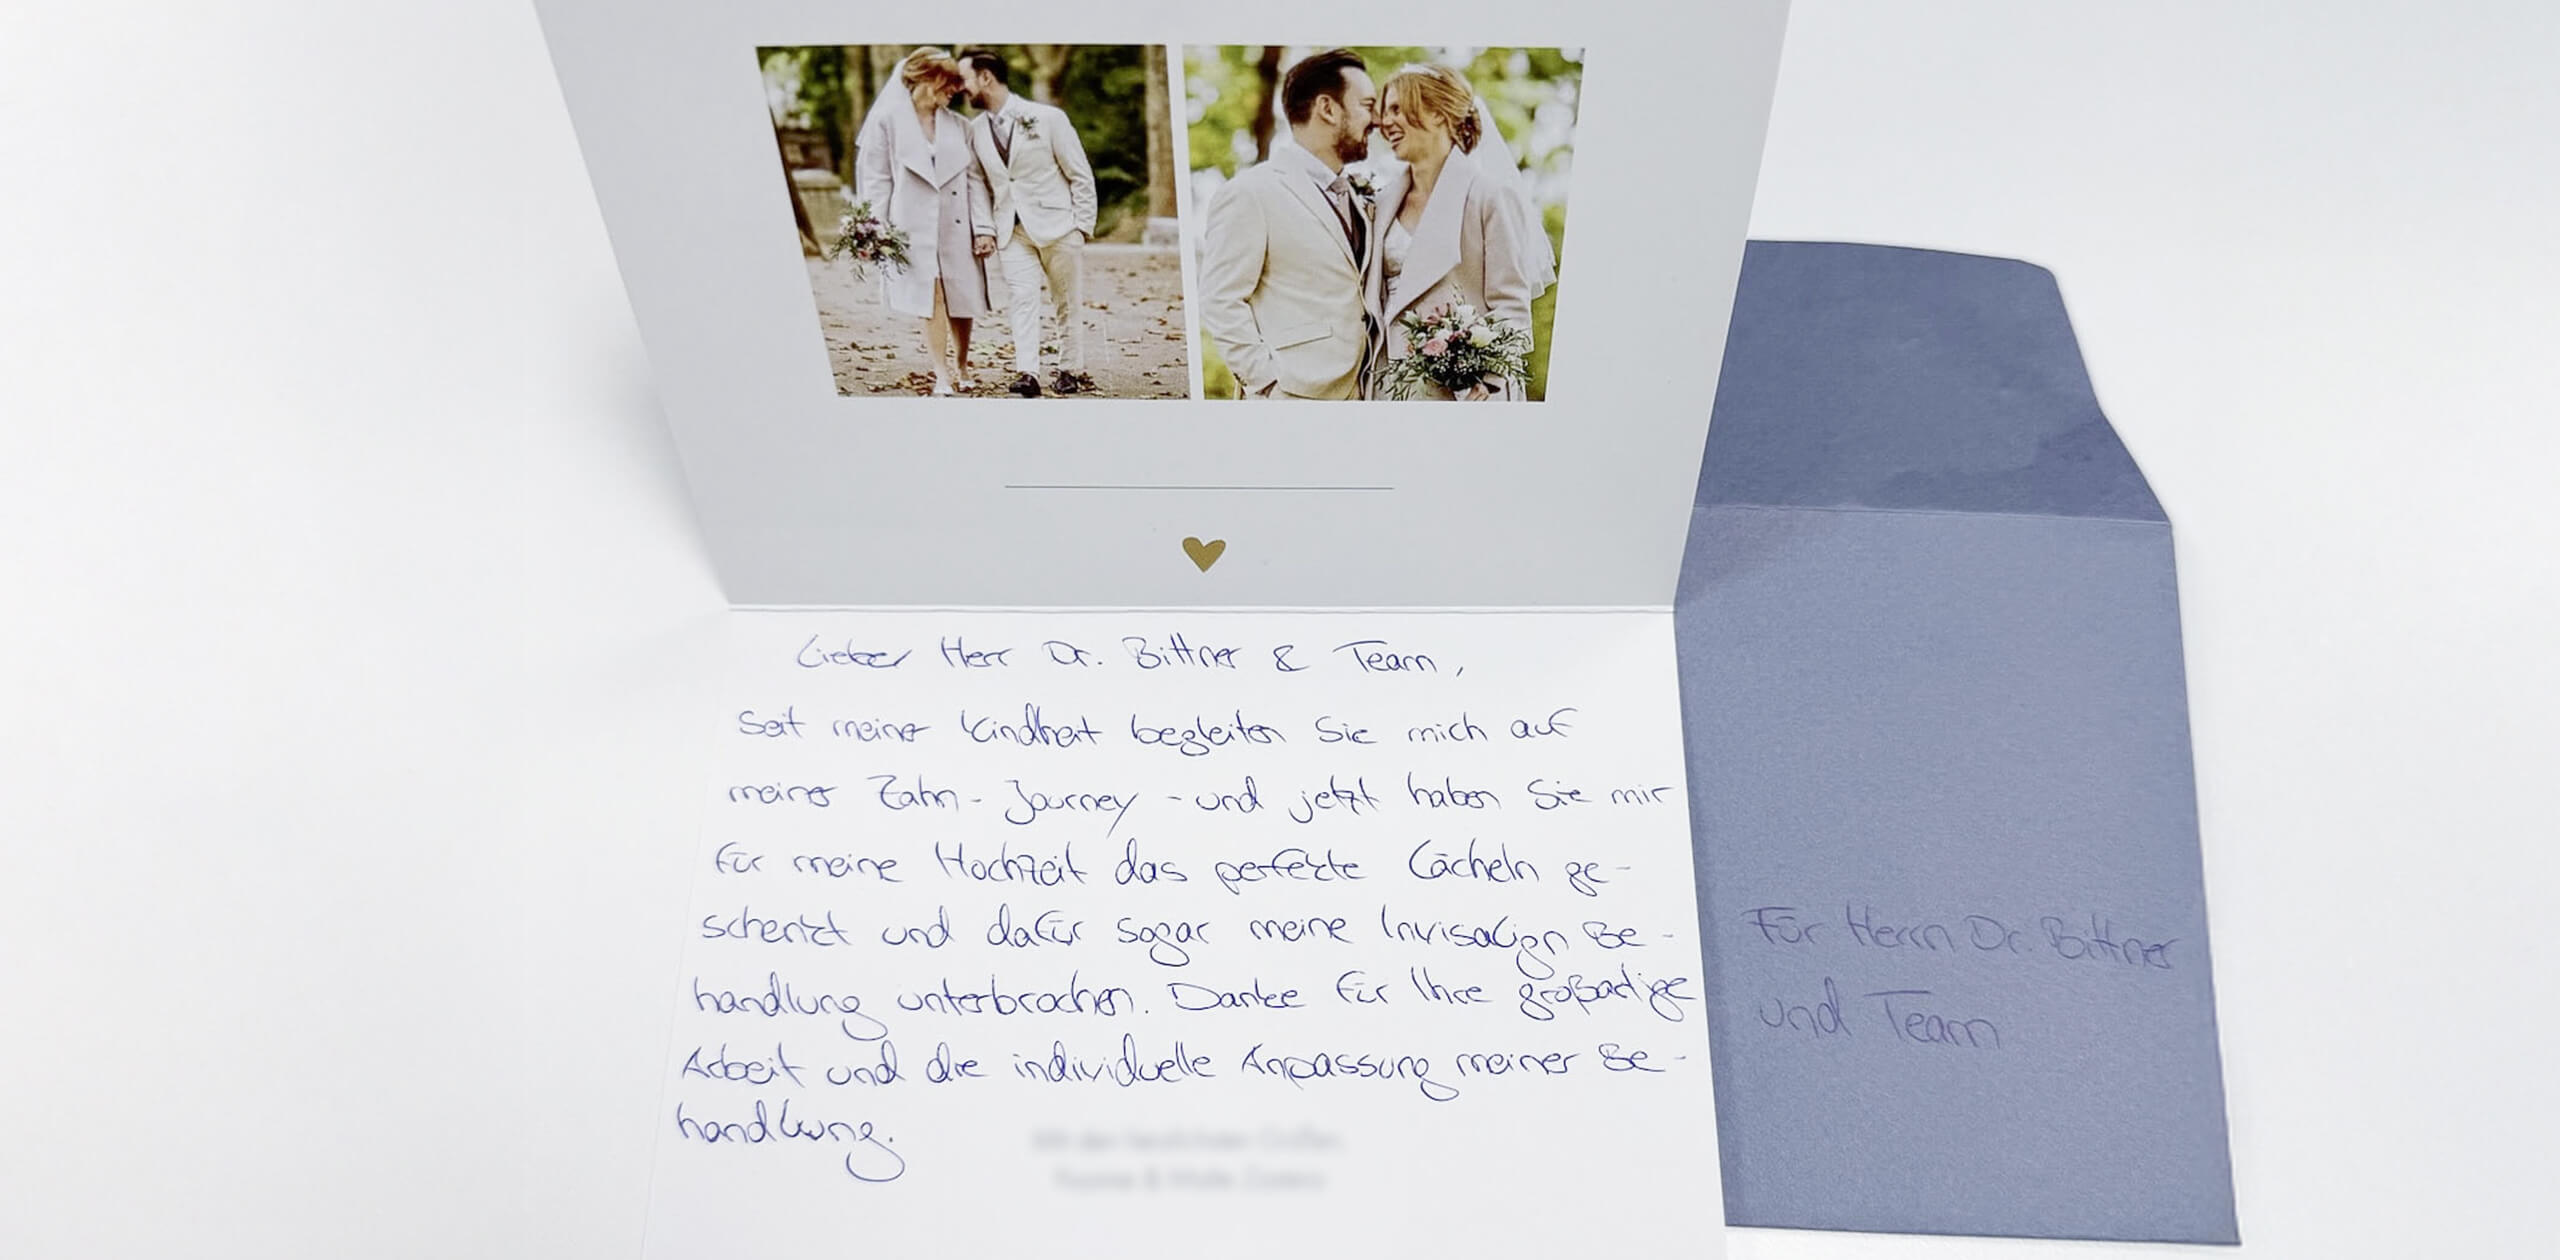 Lieber Herr Dr. Bittner & Team,
seit meiner Kindheit begleiten Sie mich auf
meiner Zahn-Journey - und jetzt haben Sie mir
für meine Hochzeit das perfekte Lächeln ge-
schenkt und dafür sogar meine Invisalign Be-
handlung unterbrochen. Danke für Ihre großartige
Arbeit und die individuelle Anpassung meiner Be-
handlung.
Für Herrn Dr. Bittner
und Team